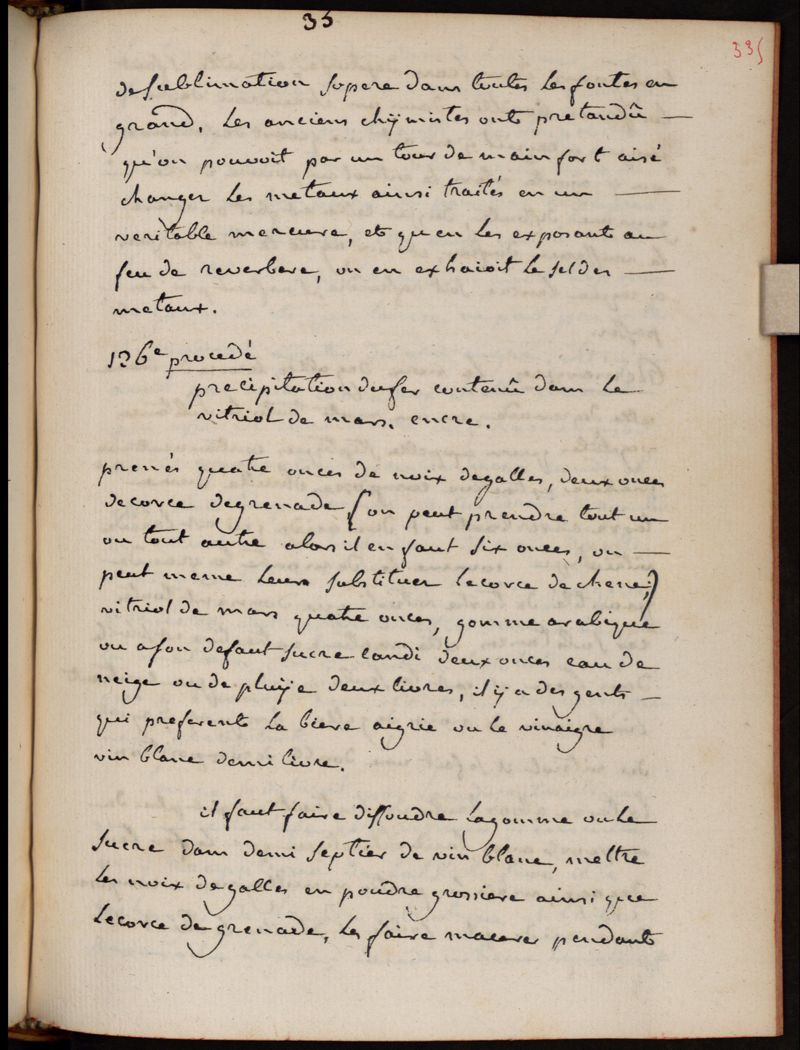 35
335
de sublimation sopere dans toutes les fontes en
grand. Les anciens chÿmistes onts pretandû
qu'on pouvoit par un tour de main fort aisé
changer les metaux ainsi traités en un
veritable mercure, ets qu'en les exposants au
feu de reverbere, on en exhaioit le sel des
metaux.
136e procedé
precipitation du fer contenû dans le
vitriol de mars. encre.
prenés quatre onces de noix de galles, deux onces
decorce de grenade (on peut prendre tout un
ou tout autre alors il en faut six onces, on
peut meme leurs substituer lecorce de chene;)
vitriol de mars quatre onces, gomme arabique
ou a son defaut sucre candi deux onces eau de
neige ou de pluÿe deux livres, il ÿ a des gents
qui preferents la biere aigrie ou le vinaigre
vin blanc demi livre.
il faut faire dissoudre la gomme ou le
sucre dans demi septier de vin blanc, mettre
les noix de galles en poudre grossiere ainsi que
lecorce de grenade, les faire macerer pendants